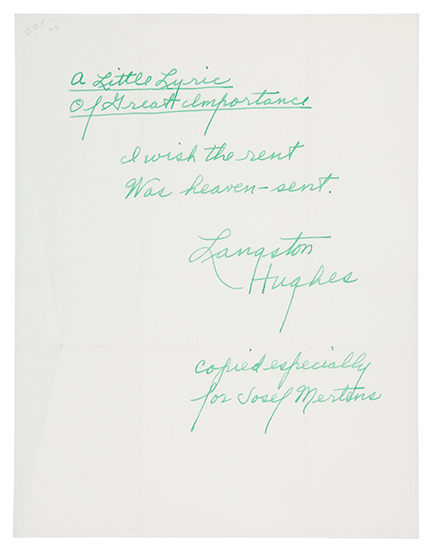 A Little Lyric
Of Great Importance
I wish the rent
Was heaven-sent.
Langston
Hughes
copied especially
for Josef Mertens